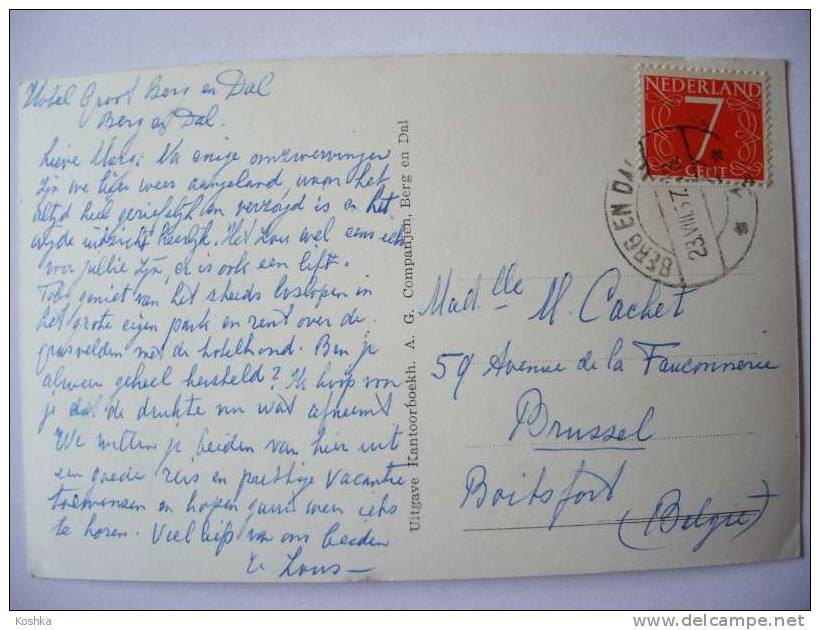 Hotel Groot Berg en Dal
Berg en Dal.
Lieve Marg. Na enige omzwervingen
zijn we hier weer aangeland, waar het
altijd heel geriefelijk en verzorgd is en het
wijde uitzicht heerlijk. Het zou wel eens echt
voor jullie zijn, er is ook een lift.
Toby geniet van het steeds loslopen in
het grote eigen park en rent over de
grasvelden met de hotelhond. Ben je
alweer geheel hersteld? Ik hoop voor
je dat de drukte nu wat afneemt
We willen je beiden van hier uit
een goede reis en prettige vacantie
toewensen en hopen gauw weer iets
te horen. Veel liefs van ons beiden
Lous
Uitgave Kantoorboekh. A. G. Companjen, Berg en Dal
NEDERLAND
7
CENT
BERG EN DAL
23.VIII.57
Madlle M. Cachet
59 Avenue de la Fauconnerie
Brussel
Boitsfort
(België)
Koshka
delcampe.net